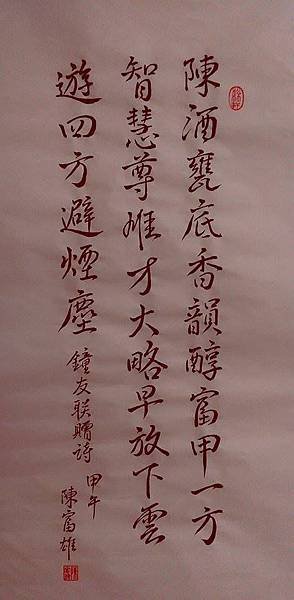 陳酒甕底香韻醇富甲一方
智慧尊雄才大略早放下雲
遊四方避煙塵
鐘友联贈詩
甲午
陳富雄